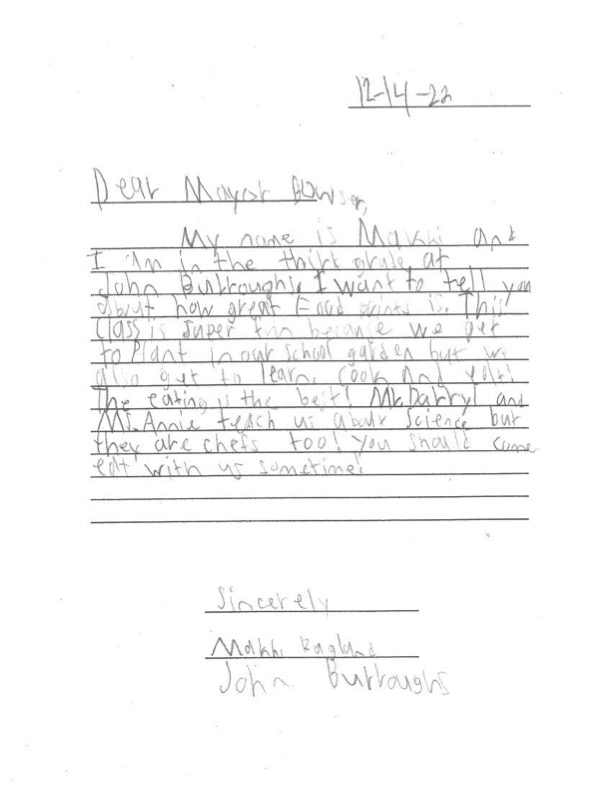 12-14-22
Dear Mayor Bowser,
My name is Makhi and
I am in the third grade at
John Burroughs. I want to tell you
about how great Food prints is. This
class is super fun because we get
to plant in our school garden but we
also get to learn, cook and eat!
The eating is the best! Mr. Darryl and
Ms. Annie teach us about science but
they are chefs too! you should come
eat with us sometime!
Sincerely
Makhi Ragland
John Burroughs